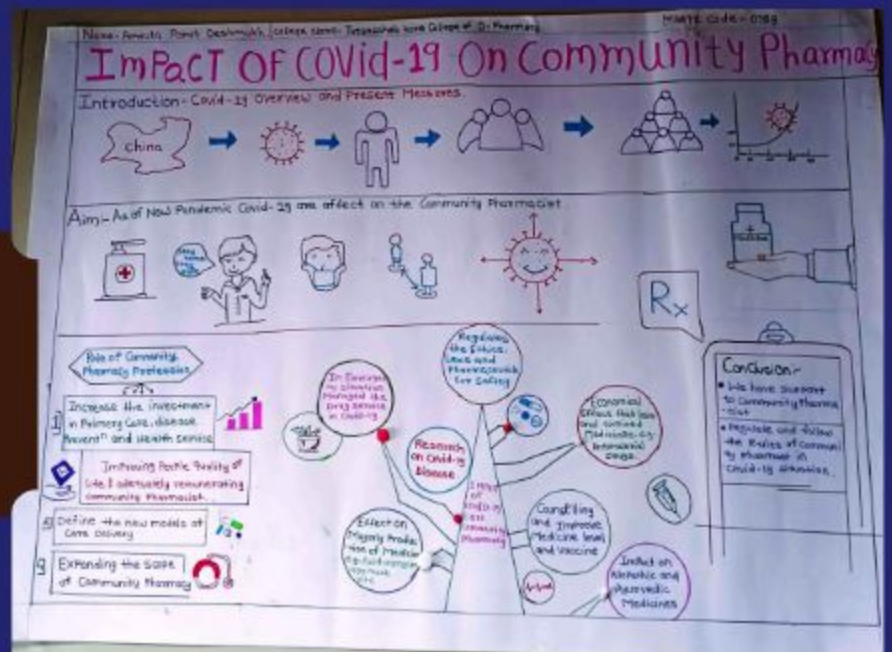 Name- Amruta Pandit Deshmukh, College Name- College of D-Pharmacy
MSBTE Code - 0789
ImPacT Of COVid-19 On Community Pharmacy
Introduction - Covid-19 Overview and Present Measures.
China
Aim:- As of New Pandemic Covid-19 are affect on the Community Pharmacist.
Medicine
Rx
Role of Community
Pharmacy Profession
Increase the investment
in Primary Care, disease
Prevent and Health Service
Improving People Quality of
Life & adequately remunerating
community Pharmacist.
Define the new models of
Care Delivery
Expanding the Scope
of Community Pharmacy
In Emergen
cy Situation
Managed the
Drug Service
in Covid-19
Regulates
the Ethics,
Laws and
Pharmaceutic
For Safety
Research
on Covid-19
Disease
Economical
Effects that less
and Limited
Medicines
Drugs.
Effect on
Majorly Produc
tion of Medicine
Impact
of
Covid-19
Community
Pharmacy
Counselling
and Improve
Medicine level
and Vaccine
Impact on
Allopathic and
Ayurvedic
Medicines
Conclusion:-
We have Support
to Community Pharma
-cist
Regulate and follow
the Rules of Communi
ty Pharmacist in
Covid-19 Situation.